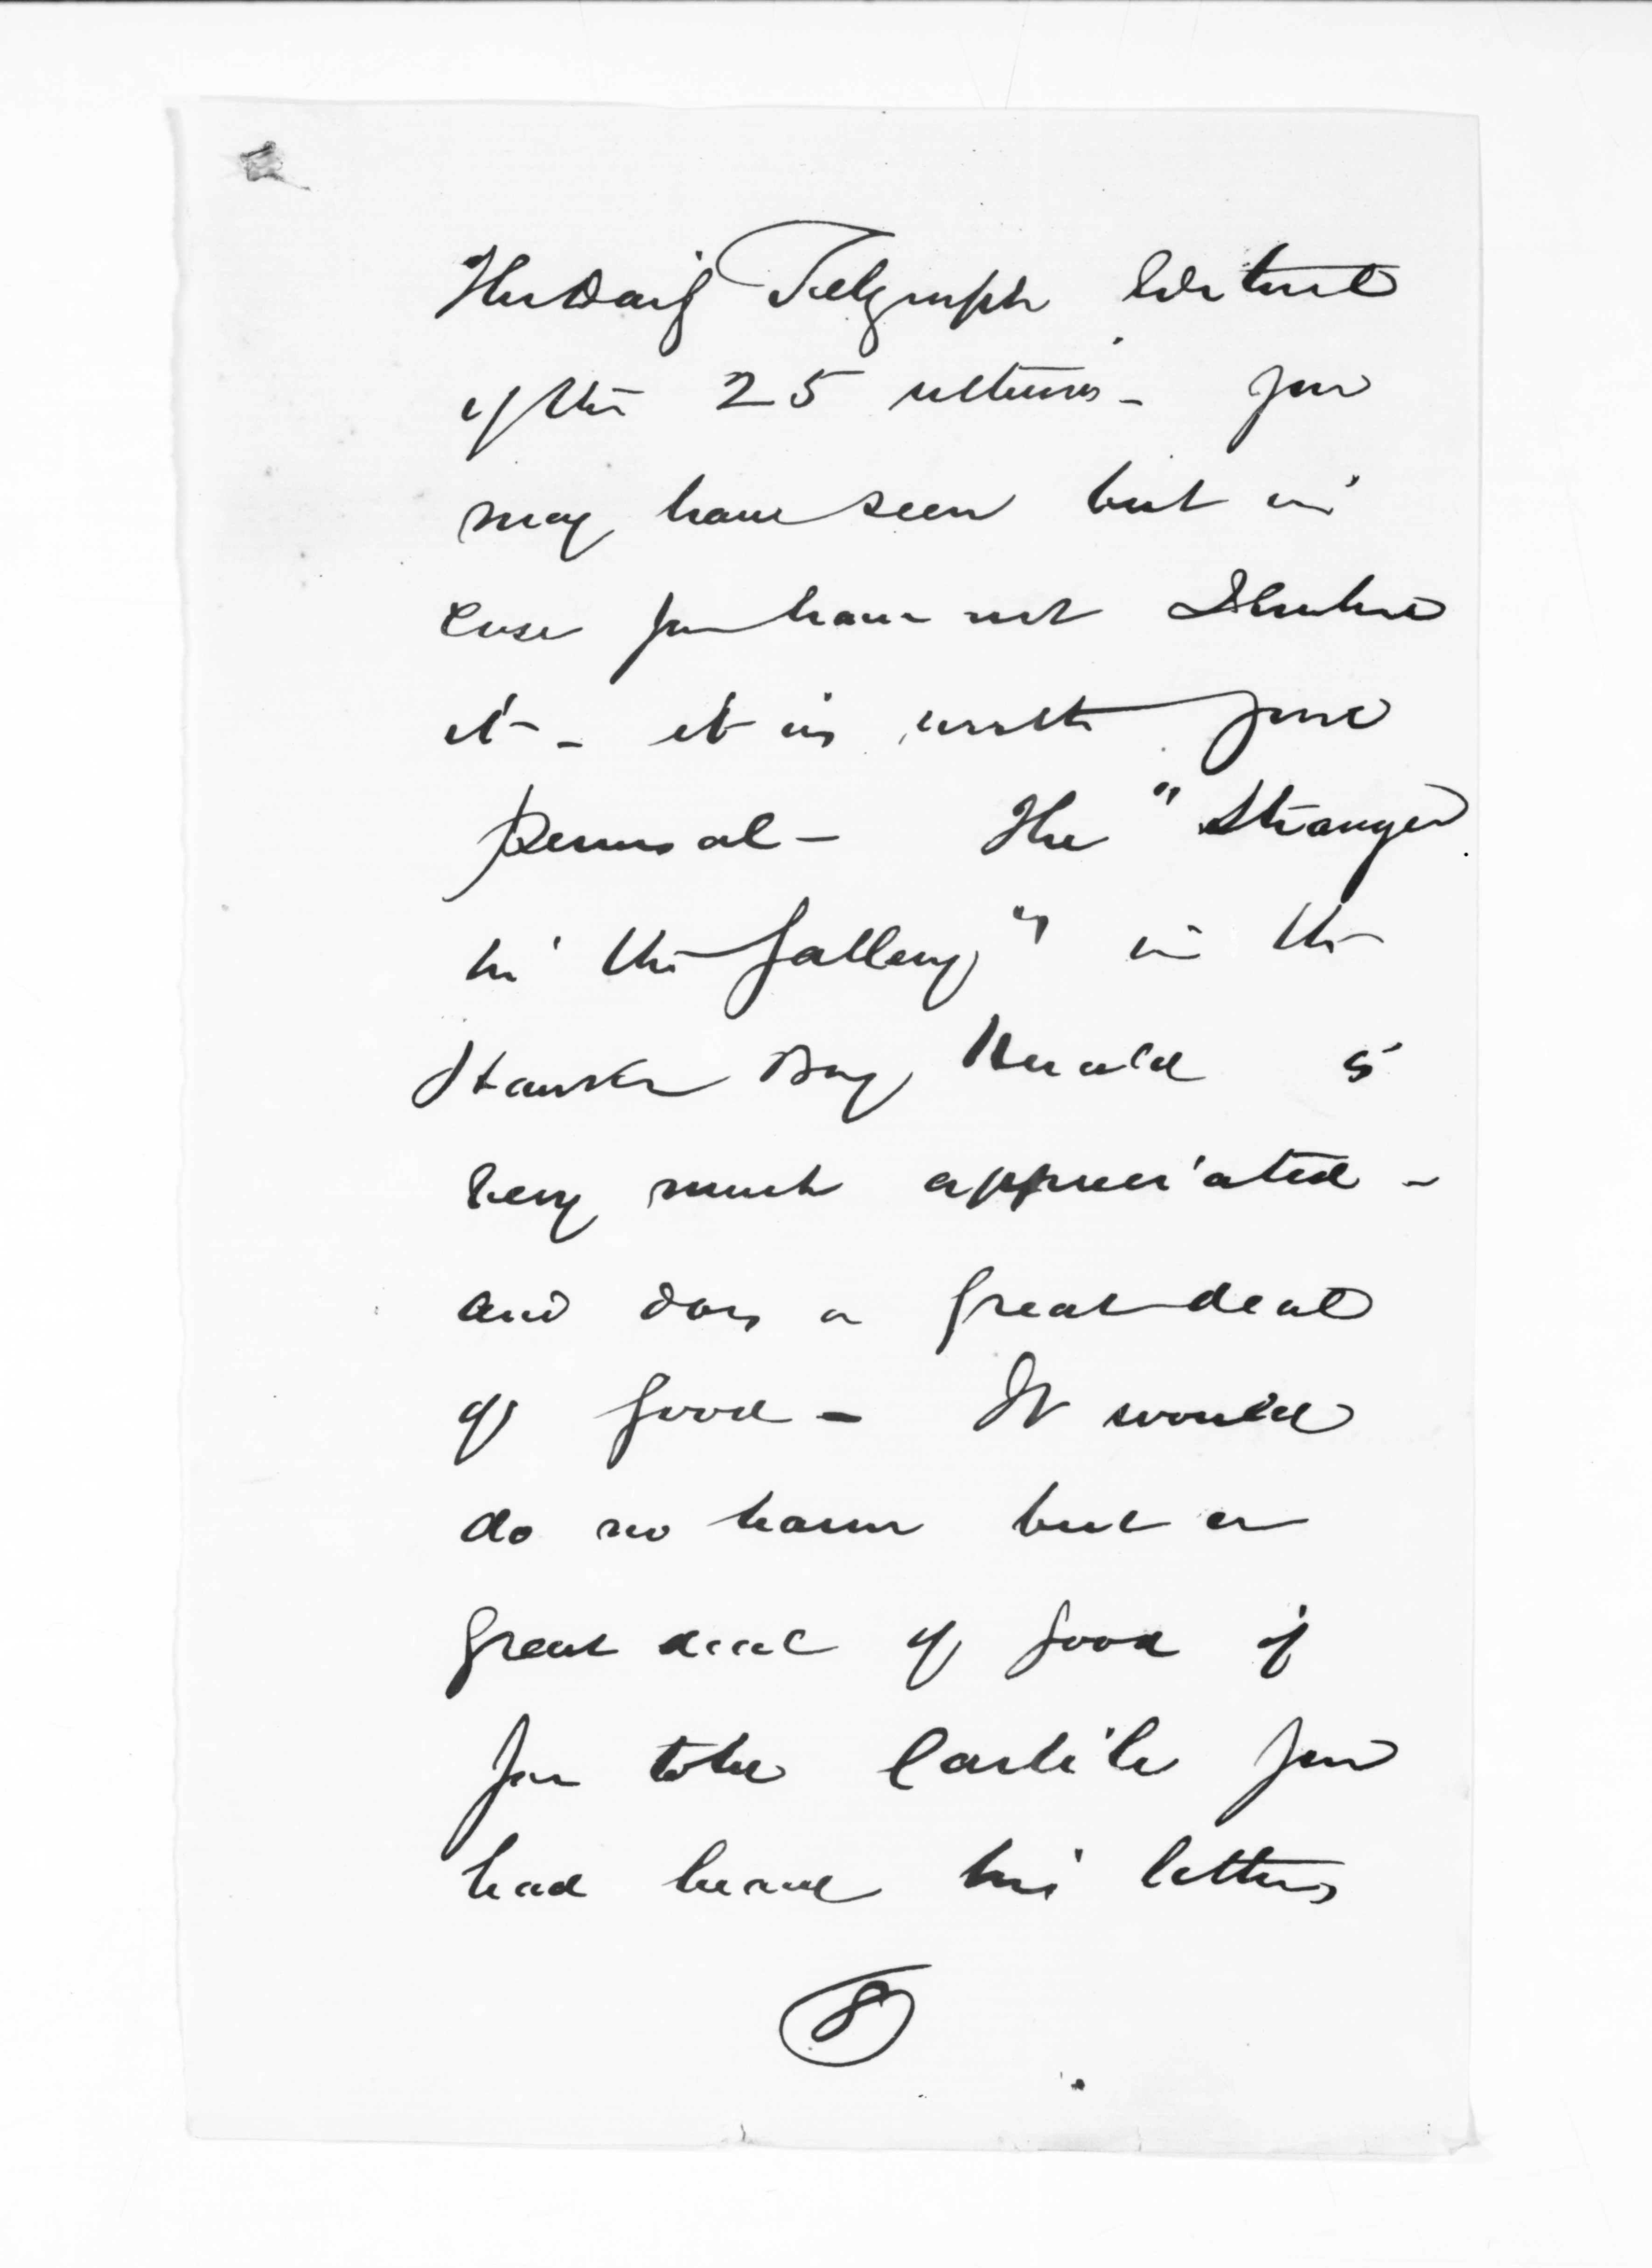 The Daily Telegraph Extract
of the 25 ultimo - you
may have seen but in
case you have not I enclose
it - it is worth your
perusal - The "Stranger
in the Gallery" in the
Hawke Bay Herald is
very much appreciated -
and does a great deal
of good - It would
do no harm but a
great deal of good if
you told Carlile you
had heard his letters
8